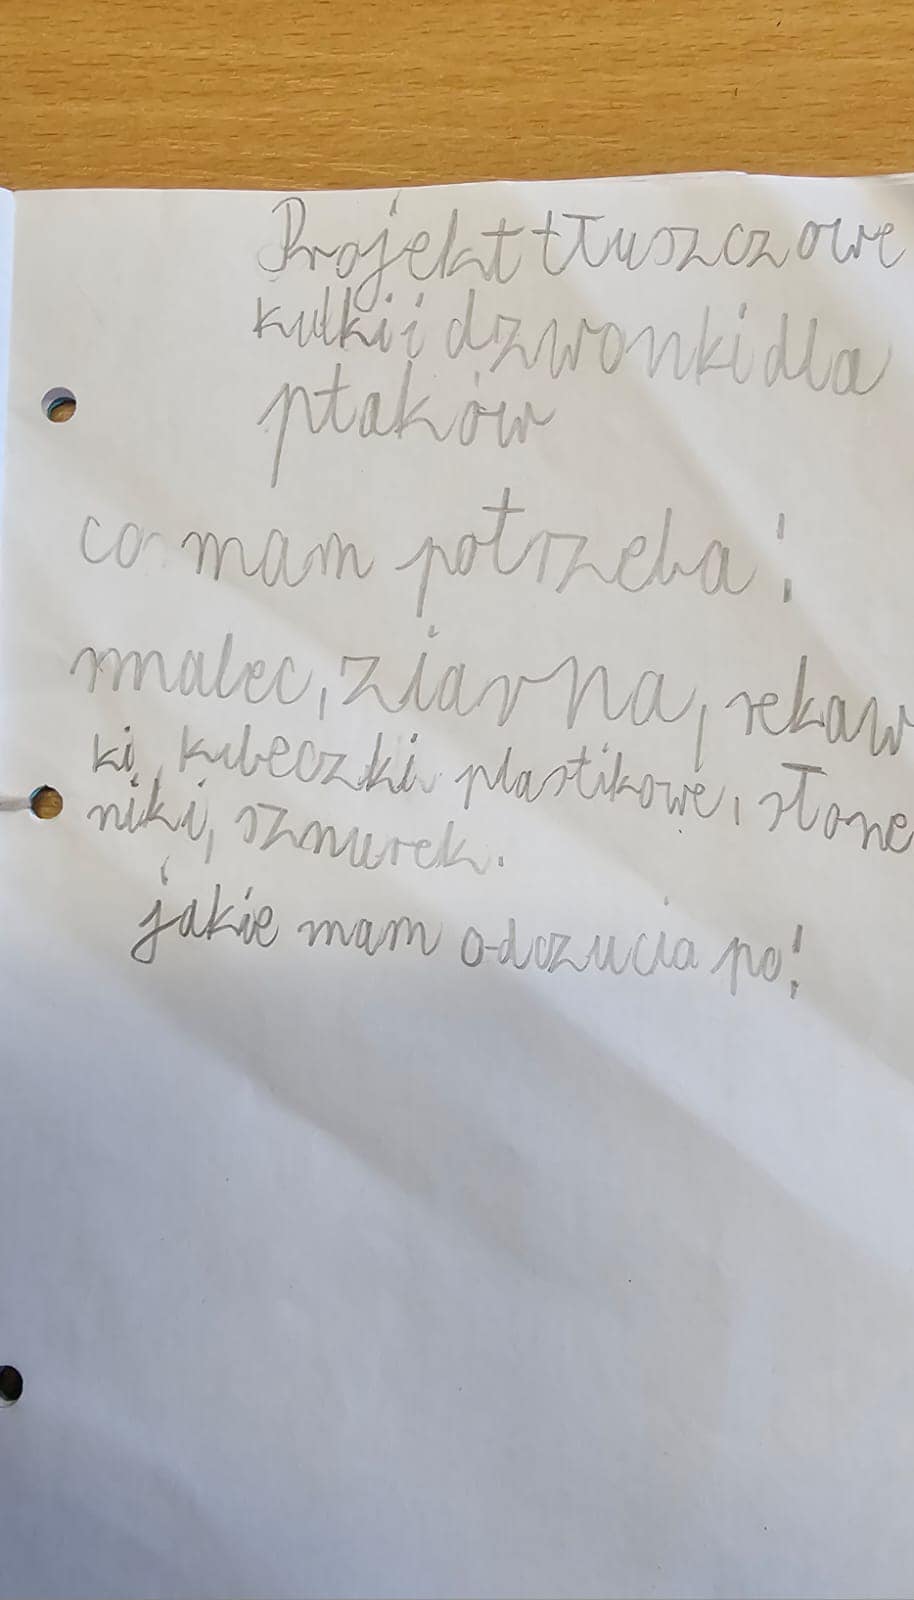 Projekt tłuszczowe
kulki i dzwonki dla
ptaków
co mam potrzeba!
smalec, ziarna, rekaw
ki, kubeczki plastikowe, słone
niki, sznurek.
jakie mam odczucia po!